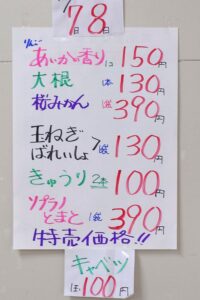 7日 8日
りんご
あいかの香り 1コ 150円
大根 1本 130円
桜みかん 1袋 390円
玉ねぎ
ばれいしょ 1袋 130円
きゅうり 2本 100円
ソプラノ
とまと 1袋 390円
特売価格!!
キャベツ
100円